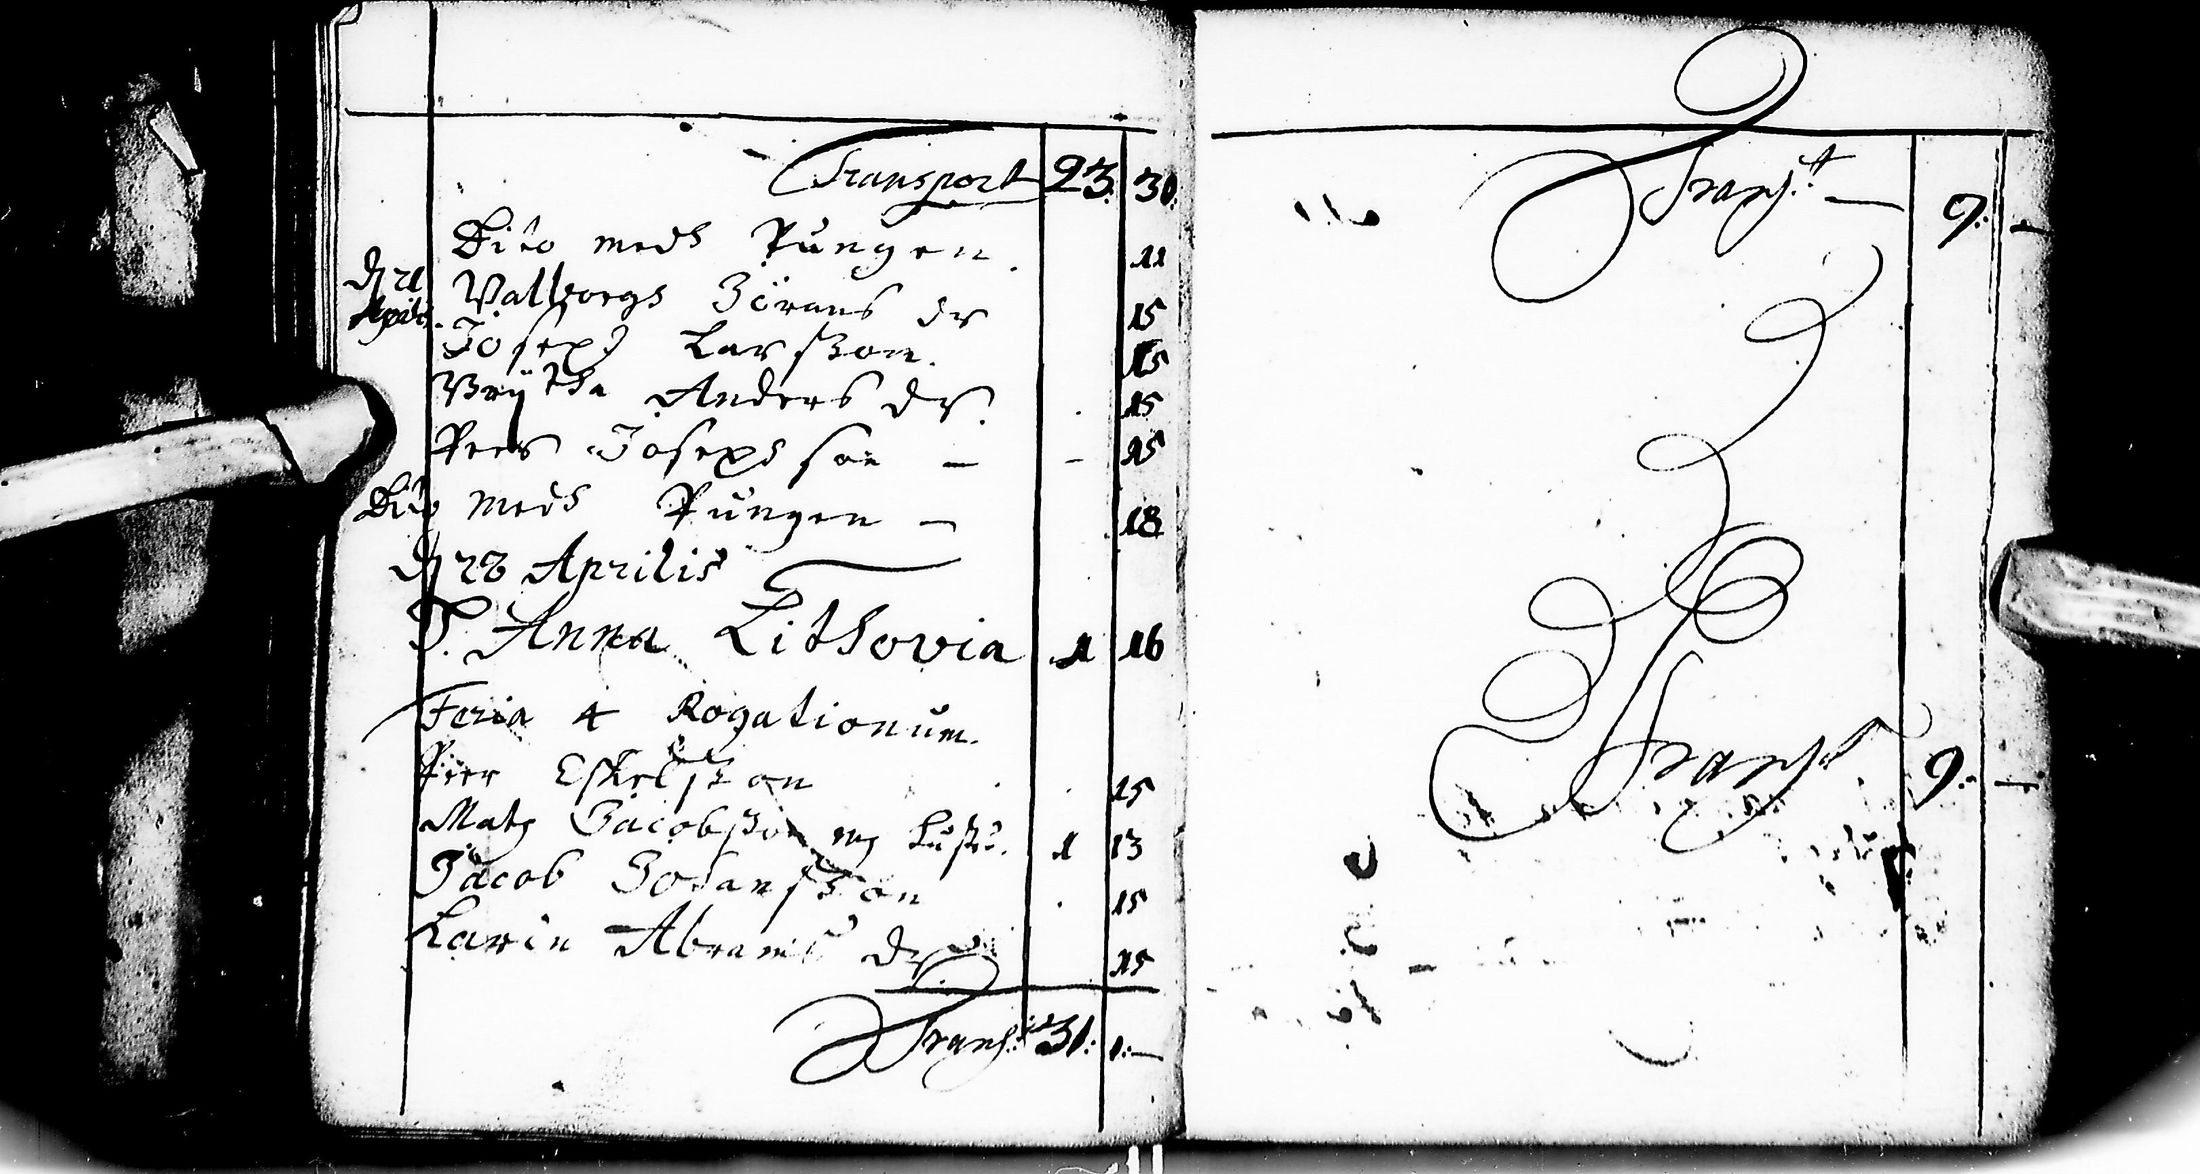 Transport 23. 30:
Dito medh Pungen. 11
dn 21 Valborgs Jörans dr 15
Aprilis. Joseph Larsson. 15
Brÿtha Anders dr. 15
Peer Josephsson — – 15
Dito medh Pungen — 18
dn 28 Aprilis
Anna Lithovia 1 16
Feria 4 Rogationum.
Peer Eskelsson 15
Mats Jacobsson 1 13
Jacob Johansson 15
Karin Abrams dr 15
Transpt 31: 1:—
Transpt — 9: —
Transpt 9: —